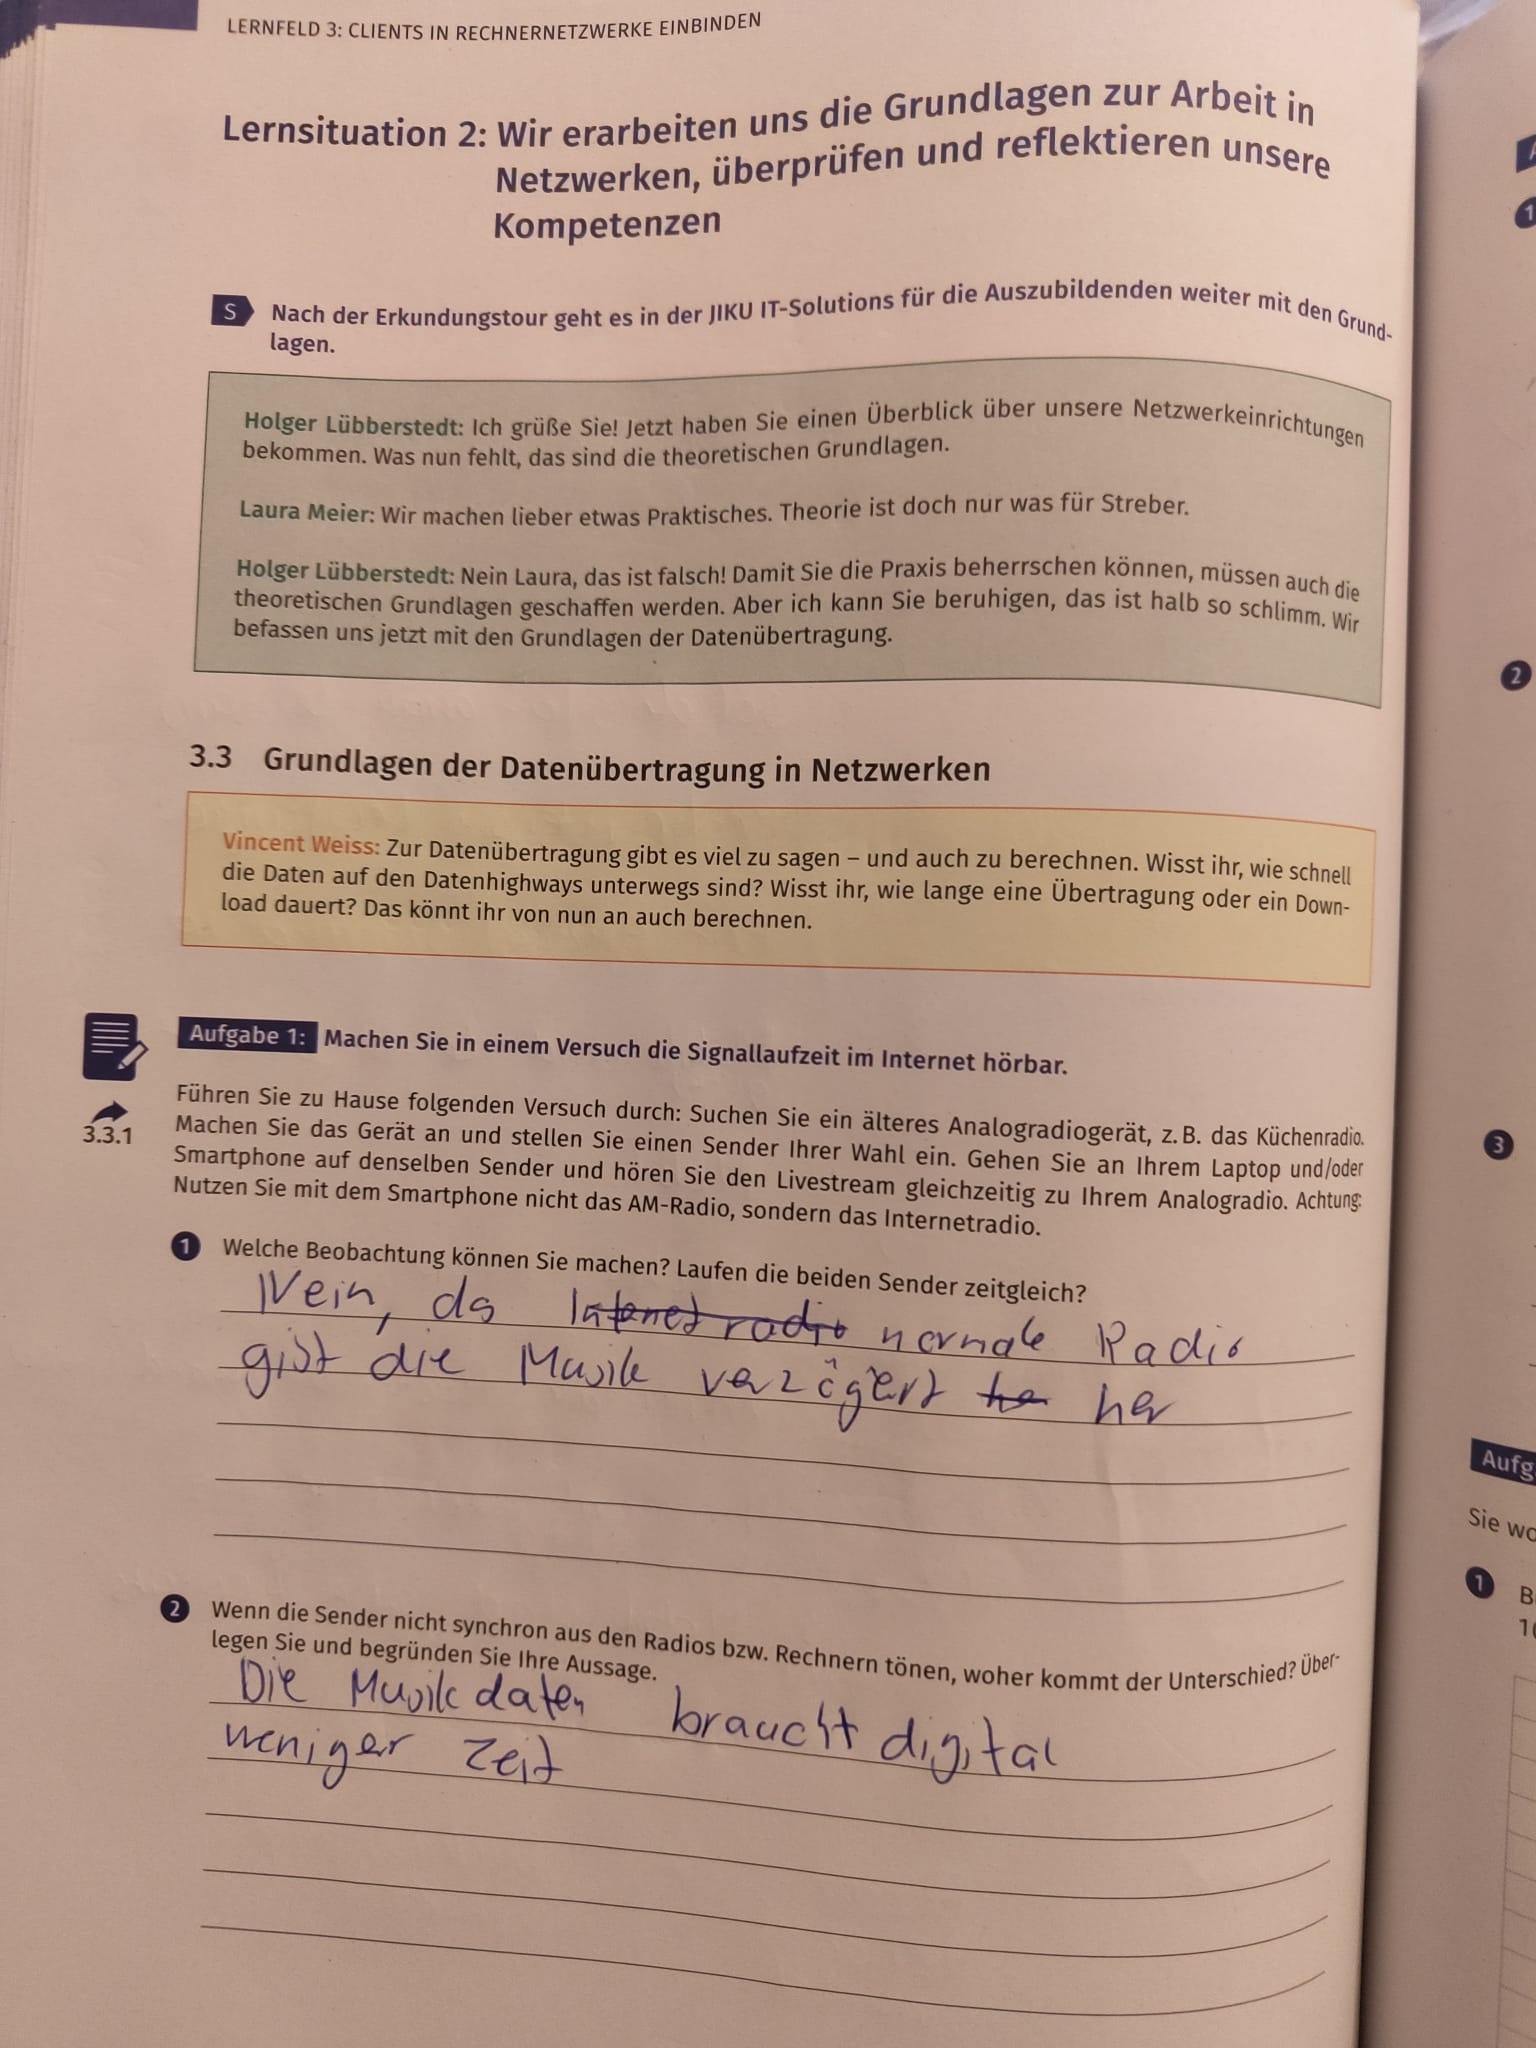 LERNFELD 3: CLIENTS IN RECHNERNETZWERKE EINBINDEN
Lernsituation 2: Wir erarbeiten uns die Grundlagen zur Arbeit in
Netzwerken, überprüfen und reflektieren unsere
Kompetenzen
S Nach der Erkundungstour geht es in der JIKU IT-Solutions für die Auszubildenden weiter mit den Grund-
lagen.
Holger Lübberstedt: Ich grüße Sie! Jetzt haben Sie einen Überblick über unsere Netzwerkeinrichtungen
bekommen. Was nun fehlt, das sind die theoretischen Grundlagen.
Laura Meier: Wir machen lieber etwas Praktisches. Theorie ist doch nur was für Streber.
Holger Lübberstedt: Nein Laura, das ist falsch! Damit Sie die Praxis beherrschen können, müssen auch die
theoretischen Grundlagen geschaffen werden. Aber ich kann Sie beruhigen, das ist halb so schlimm. Wir
befassen uns jetzt mit den Grundlagen der Datenübertragung.
3.3 Grundlagen der Datenübertragung in Netzwerken
Vincent Weiss: Zur Datenübertragung gibt es viel zu sagen – und auch zu berechnen. Wisst ihr, wie schnell
die Daten auf den Datenhighways unterwegs sind? Wisst ihr, wie lange eine Übertragung oder ein Down-
load dauert? Das könnt ihr von nun an auch berechnen.
Aufgabe 1: Machen Sie in einem Versuch die Signallaufzeit im Internet hörbar.
3.3.1
Führen Sie zu Hause folgenden Versuch durch: Suchen Sie ein älteres Analogradiogerät, z. B. das Küchenradio.
Machen Sie das Gerät an und stellen Sie einen Sender Ihrer Wahl ein. Gehen Sie an Ihrem Laptop und/oder
Smartphone auf denselben Sender und hören Sie den Livestream gleichzeitig zu Ihrem Analogradio. Achtung:
Nutzen Sie mit dem Smartphone nicht das AM-Radio, sondern das Internetradio.
1 Welche Beobachtung können Sie machen? Laufen die beiden Sender zeitgleich?
Nein, da Intenetradio normale Radio
gibt die Musik verzögert he her
2 Wenn die Sender nicht synchron aus den Radios bzw. Rechnern tönen, woher kommt der Unterschied? Über-
legen Sie und begründen Sie Ihre Aussage.
Die Musikdaten braucht digital
weniger Zeit
1
2
3
Aufg
Sie wo
1 B